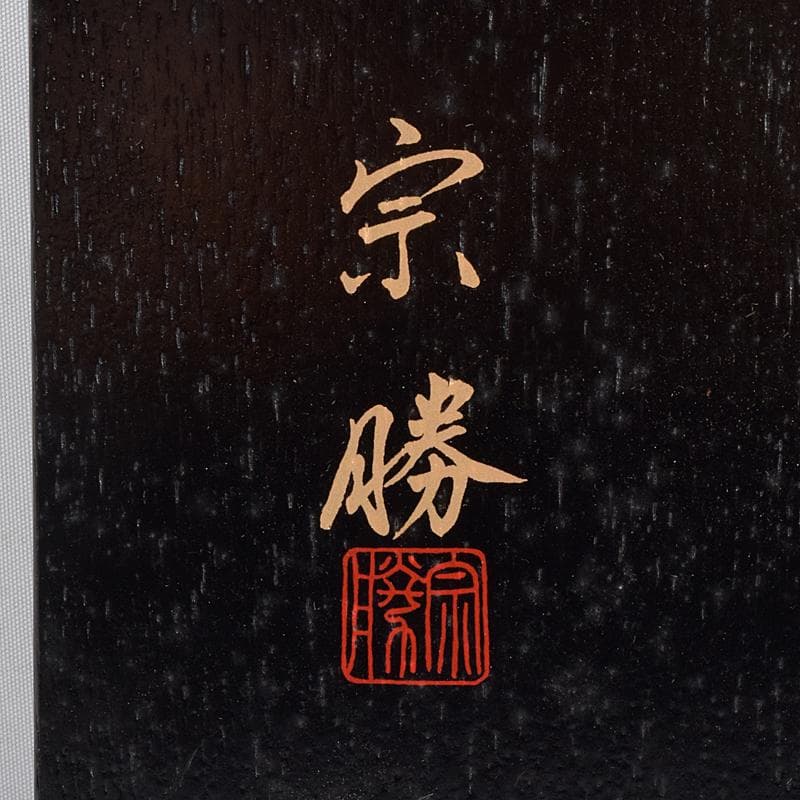 宗勝
宗勝